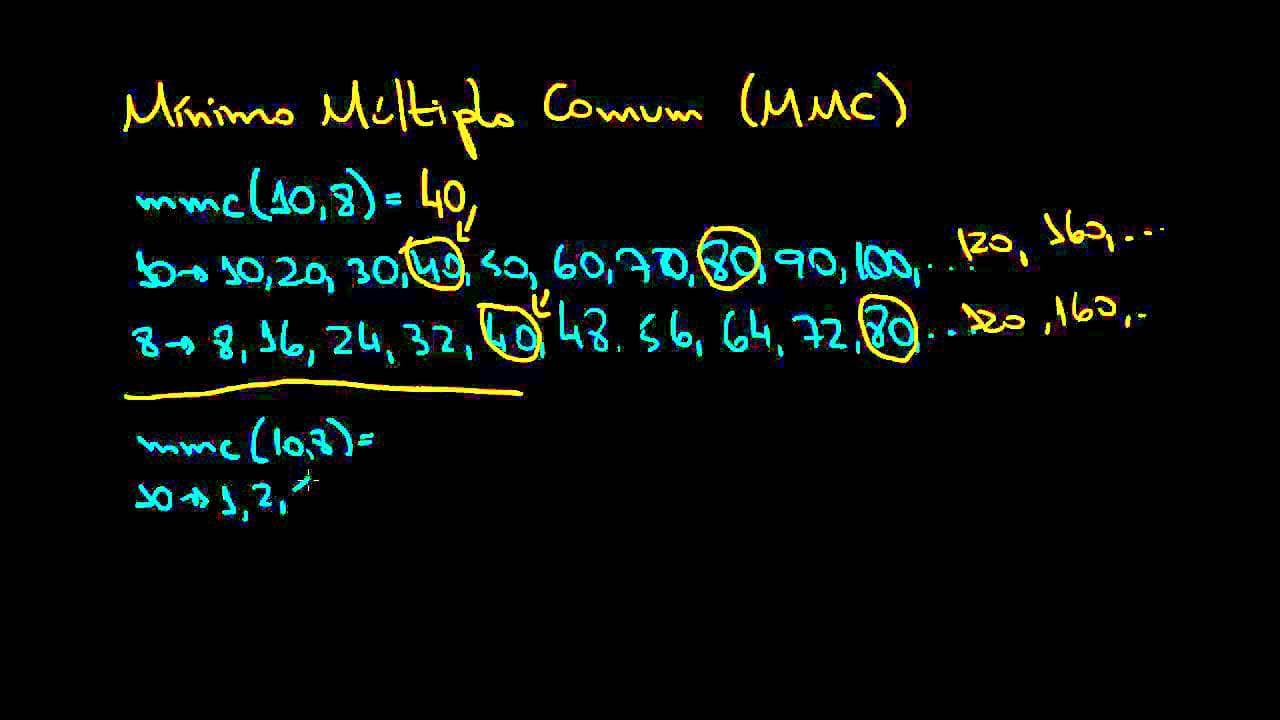 Mínimo Múltiplo Comum (MMC)
mmc(10,8) = 40,
10→10,20,30,40,50,60,70,80,90,100,... 120, 160,...
8→8,16,24,32,40,48.56,64,72,80... 120,160,..
mmc(10,8)=
10→1,2,